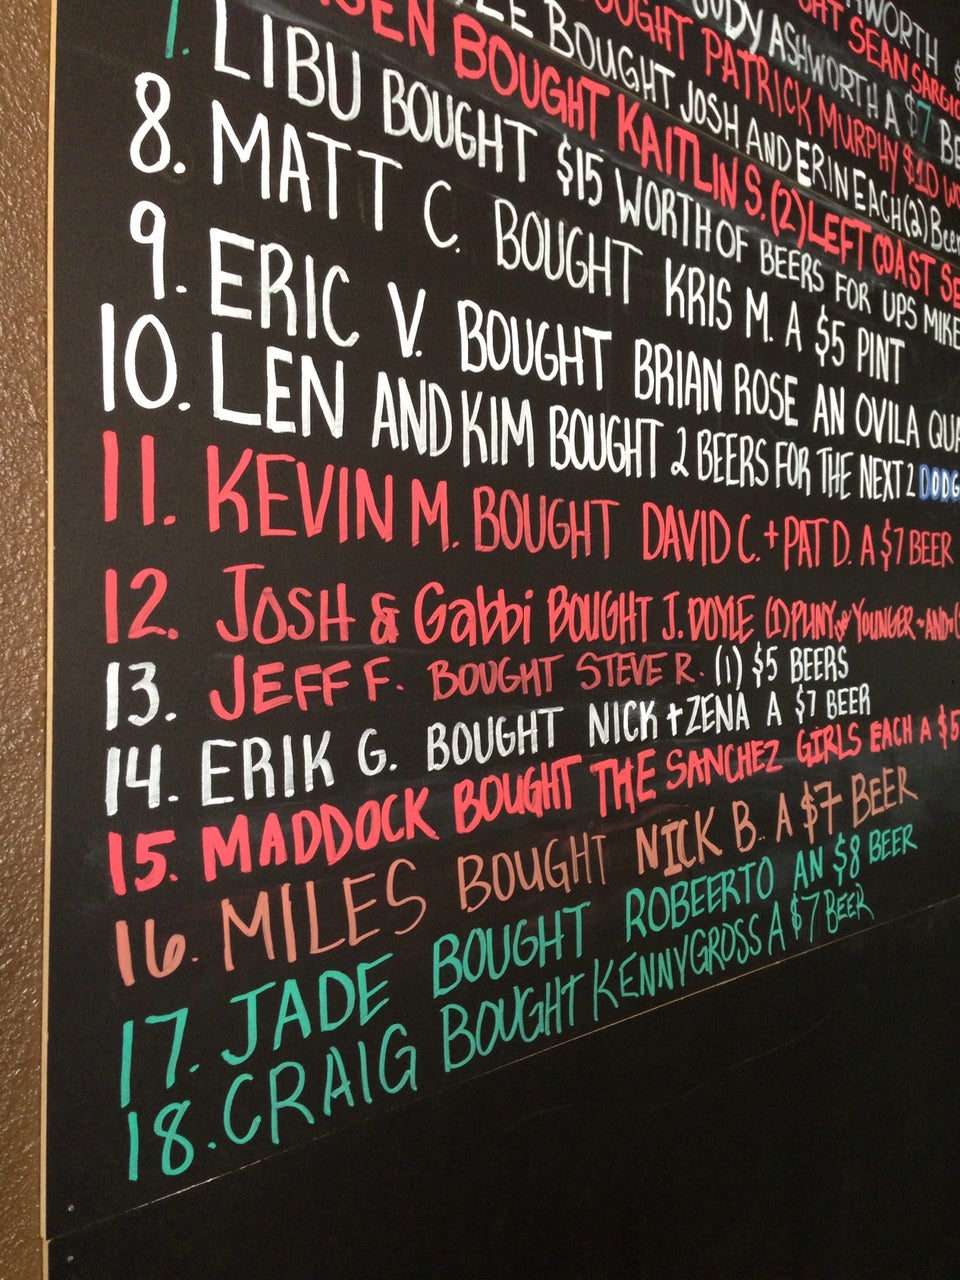 HWORTH $
SEAN
JUDY ASHWORTH A $7 BE
OUGHT PATRICK MURPHY $10 WO
ZE BOUGHT JOSH AND ERIN EACH (2) Beer
SEN BOUGHT KAITLIN S. (2) LEFT COAST SE
7. LIBU BOUGHT $15 WORTH OF BEERS FOR UPS MIKE
8. MATT C. BOUGHT KRIS M. A $5 PINT
9. ERIC V. BOUGHT BRIAN ROSE AN OVILA QUA
10. LEN AND KIM BOUGHT 2 BEERS FOR THE NEXT 2 DODG
11. KEVIN M. BOUGHT DAVID C. + PAT D. A $7 BEER
12. JOSH & Gabbi BOUGHT J. DOYLE (1) PLINY YOUNGER ~AND~
13. JEFF F. BOUGHT STEVE R. (1) $5 BEERS
14. ERIK G. BOUGHT NICK + ZENA A $7 BEER
15. MADDOCK BOUGHT THE SANCHEZ GIRLS EACH A $5
16. MILES BOUGHT NICK B. A $7 BEER
17. JADE BOUGHT ROBEERTO AN $8 BEER
18. CRAIG BOUGHT KENNY GROSS A $7 BEER